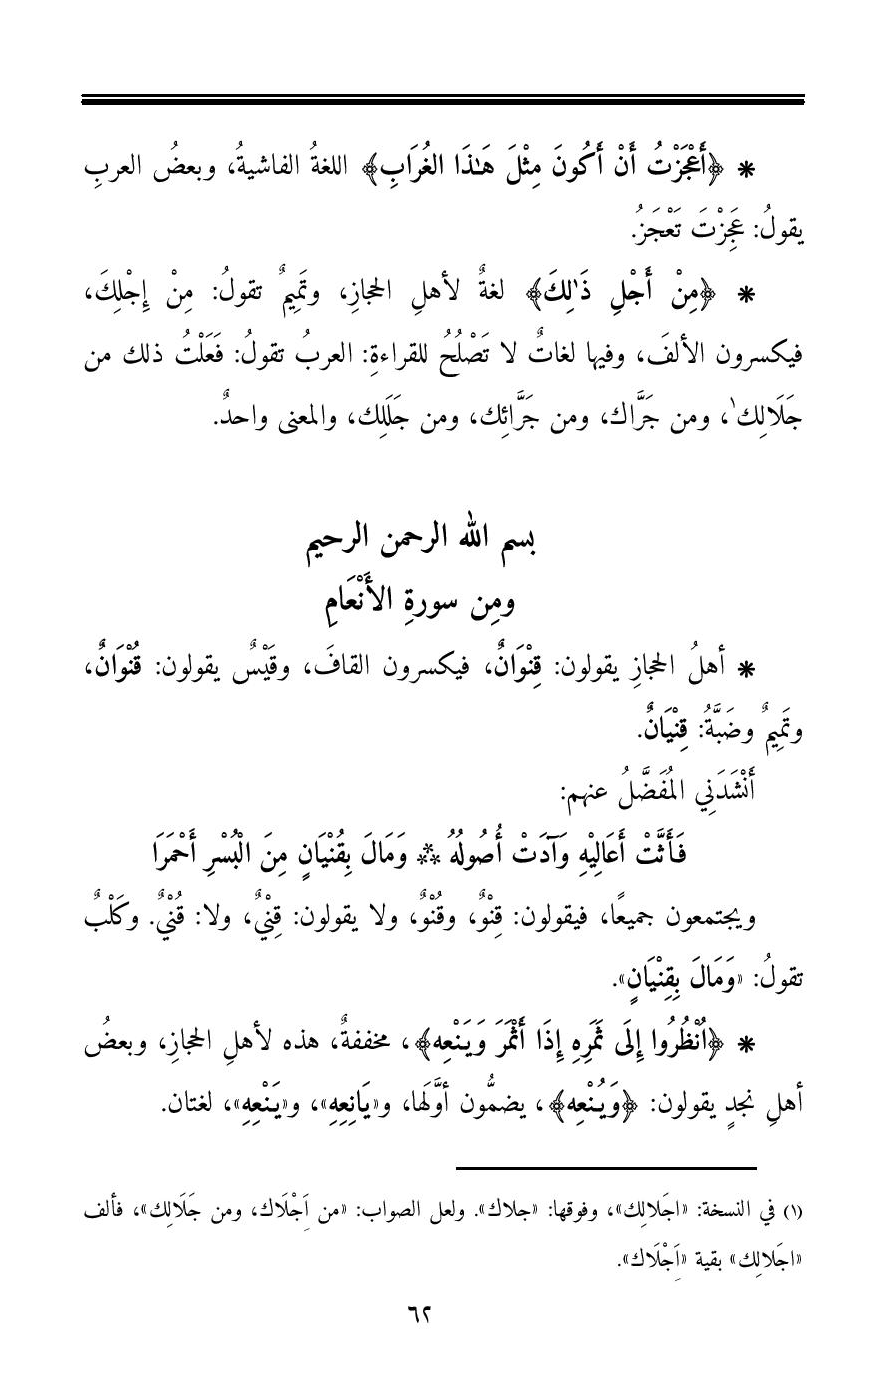 * ﴿أَعْجَزْتُ أَنْ أَكُونَ مِثْلَ هَـٰذَا الغُرَابِ﴾ اللغةُ الفاشيةُ، وبعضُ العربِ
يقولُ: عَجِزْتَ تَعْجَزُ.
* ﴿مِنْ أَجْلِ ذَٰلِكَ﴾ لغةٌ لأهلِ الحجازِ، وتَمِيمٌ تقولُ: مِنْ إِجْلِكَ،
فيكسرون الألفَ، وفيها لغاتٌ لا تَصْلُحُ للقراءةِ: العربُ تقولُ: فَعَلْتُ ذلك من
جَلَالِك⁽¹⁾، ومن جَرَّاك، ومن جَرَّائِك، ومن جَلَلِك، والمعنى واحدٌ.
بسم الله الرحمن الرحيم
ومِن سورةِ الأَنْعَامِ
* أهلُ الحجازِ يقولون: قِنْوَانٌ، فيكسرون القافَ، وقَيْسٌ يقولون: قُنْوَانٌ،
وتَمِيمٌ وضَبَّةُ: قِنْيَانٌ.
أَنْشَدَنِي المُفَضَّلُ عنهم:
فَأَثَّتْ أَعَالِيْهِ وَآدَتْ أُصُولُهُ ** وَمَالَ بِقُنْيَانٍ مِنَ الْبُسْرِ أَحْمَرَا
ويجتمعون جميعًا، فيقولون: قِنْوٌ، وقُنْوٌ، ولا يقولون: قِنْيٌ، ولا: قُنْيٌ. وكَلْبٌ
تقولُ: «وَمَالَ بِقِنْيَانٍ».
* ﴿اُنْظُرُوا إِلَى ثَمَرِهِ إِذَا أَثْمَرَ وَيَنْعِه﴾، مخففةٌ، هذه لأهلِ الحجازِ، وبعضُ
أهلِ نجدٍ يقولون: ﴿وَيُنْعِه﴾، يضمُّون أوَّلَها، و«يَانِعِهِ»، و«يَنْعِهِ»، لغتان.
(١) في النسخة: «اجَلالِك»، وفوقها: «جلاك». ولعل الصواب: «من اَِجْلَاك، ومن جَلَالِك»، فألف
«اجَلالِك» بقية «اَِجْلَاك».
٦٢